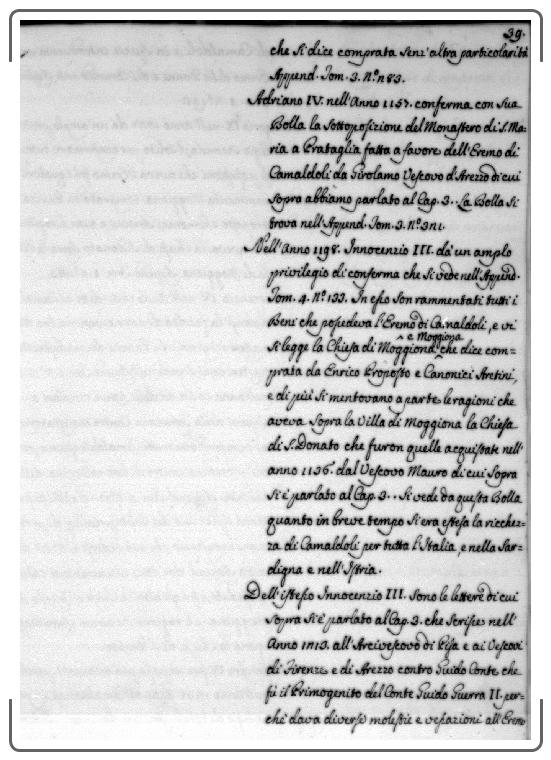 39.
che si dice comprata senz'altra particolarità
Append. Tom. 3. N.º 183.
Adriano IV. nell'Anno 1157. conferma con sua
Bolla la sottoposizione del Monastero di S. Ma=
ria a Prataglia fatta a favore dell'Eremo di
Camaldoli da Girolamo Vescovo d'Arezzo di cui
sopra abbiamo parlato al Cap. 3.. La Bolla si
trova nell'Append. Tom. 3. N.º
Nell'Anno 1198. Innocenzio III. da' un amplo
privilegio di conferma che si vede nell'Append.
Tom. 4. N.º 133. In esso son rammentati tutti i
Beni che possedeva l'Eremo di Camaldoli, e vi
si legge la Chiesa di Moggiona e Moggiona che dice com=
prata da Enrico Proposto e Canonici Aretini,
e di più si mentovano a parte le ragioni che
aveva sopra la Villa di Moggiona la Chiesa
di S. Donato che furon quelle acquistate nell'
anno 1136. dal Vescovo Mauro di cui sopra
si è parlato al Cap. 3.. Si vede da questa Bolla
quanto in breve tempo si era estesa la ricchez=
za di Camaldoli per tutta l'Italia, e nella Sar=
digna e nell'Istria.
Dell'istesso Innocenzio III. sono le lettere di cui
sopra si è parlato al Cap. 3. che scrisse nell'
Anno all'Arcivescovo di Pisa e ai Vescovi
di Firenze e di Arezzo contro Guido Conte che
fù il Primogenito del Conte Guido Guerra II. per=
chè dava diverse molestie e vessazioni all'Eremo